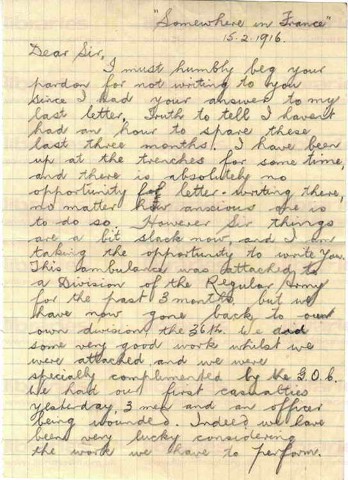 "Somewhere in France"
15.2.1916.
Dear Sir,
I must humbly beg your
pardon for not writing to you
since I had your answer to my
last letter, Truth to tell I haven't
had an hour to spare these
last three months. I have been
up at the trenches for some time,
and there is absolutely no
opportunity for letter-writing there,
no matter how anxious one is
to do so. However Sir things
are a bit slack now, and I am
taking the opportunity to write you.
This ambulance was attached to
a Division of the Regular Army
for the past 3 months, but we
have now gone back to our
own division, the 36th. We did
some very good work whilst we
were attached and we were
specially complimented by the G.O.C.
We had our first casualties
yesterday, 3 men and an officer
being wounded. Indeed we have
been very lucky considering
the work we have to perform.